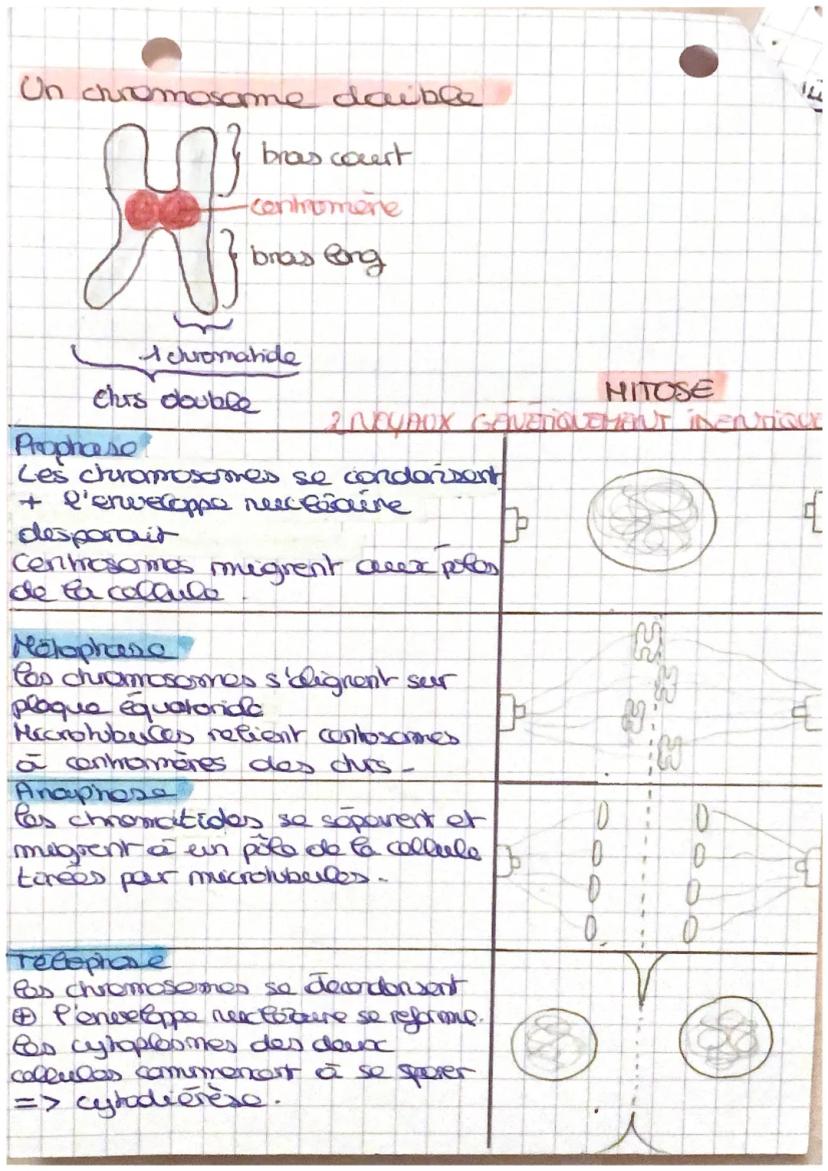 Un chromosome double
bras court
centromère
bras long
1 chromatide
chrs double
MITOSE
2 NOYAUX GÉNÉTIQUEMENT IDENTIQUE
Prophase
Les chromosomes se condensent
+ l'enveloppe nucléaire
desparait
Centrosomes migrent aux pôles
de la cellule.
Métaphase
les chromosomes s'alignent sur
plaque équatoriale
Microtubules relient centosomes
à centromères des chrs.
Anaphase
les chromatides se séparent et
migrent à un pôle de la cellule
tirées par microtubules.
Télophase
les chromosomes se décondensent
⊕ l'enveloppe nucléaire se reforme.
les cytoplasmes des deux
cellules commencent à se sparer
=> cytodiérèse.